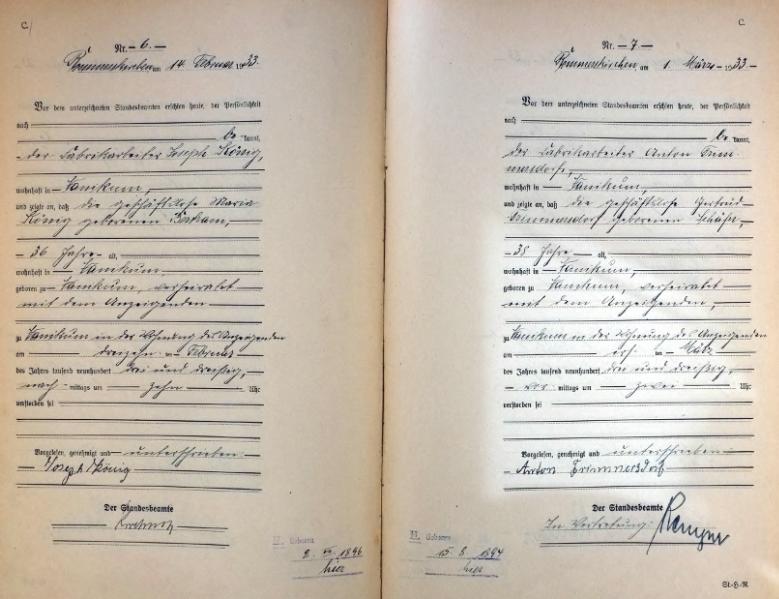 C.
Nr. 6.
Rommerskirchen am 14. Februar 1933.
Vor dem unterzeichneten Standesbeamten erschien heute, der Persönlichkeit
nach
be kannt,
der Fabrikarbeiter Joseph König,
wohnhaft in Vanikum,
und zeigte an, daß die geschäftslose Maria
König geborenen
36 Jahre alt,
wohnhaft in Vanikum,
geboren zu Vanikum, verheiratet
mit dem Anzeigenden
zu Vanikum in der Wohnung des Anzeigenden
am dreizehn ten Februar
des Jahres tausend neunhundert drei und dreißig,
nach mittags um zehn Uhr
verstorben sei
Vorgelesen, genehmigt und unterschrieben
Joseph König
Der Standesbeamte
H. Geboren
1896
hier
C.
Nr. 7
Rommerskirchen am 1. März 1933
Vor dem unterzeichneten Standesbeamten erschien heute, der Persönlichkeit
nach
be kannt,
der Fabrikarbeiter Anton Trim-
mersdorf,
wohnhaft in Vanikum,
und zeigte an, daß die geschäftslose Gertrud
Trimmersdorf geborenen Schäfer,
38 Jahre alt,
wohnhaft in Vanikum,
geboren zu Vanikum, verheiratet
mit dem Anzeigenden,
zu Vanikum in der Wohnung des Anzeigenden
am ersten März
des Jahres tausend neunhundert drei und dreißig,
vor mittags um zwei Uhr
verstorben sei
Vorgelesen, genehmigt und unterschrieben
Anton Trimmersdorf
Der Standesbeamte
In Vertretung:
H. Geboren
15 8 1894
hier
St-H-R